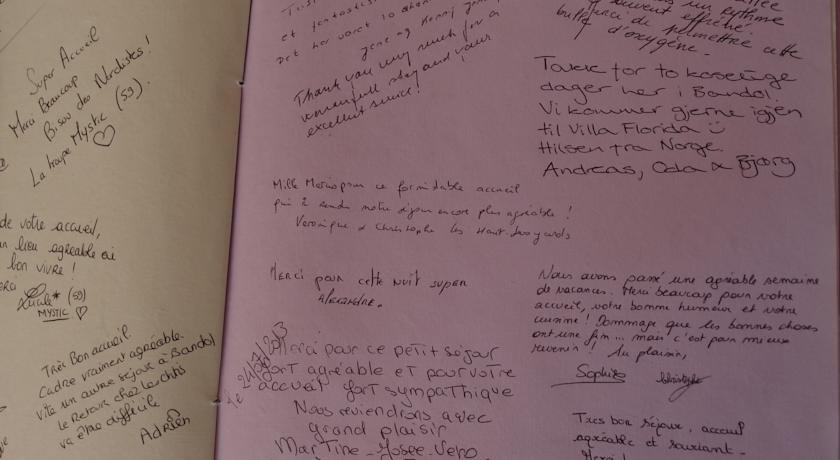 Super Accueil
Merci Beaucoup
Bisou des Nordistes !
(59).
La troupe Mystic ♡
de votre accueil,
lieu agréable où
bon vivre !
Lucile* (59)
MYSTIC ♡
Très Bon accueil
Cadre vraiment agréable.
Vite un autre séjour à Bandol
le Retour chez les chtis
va être difficile
Adrien
et fantastisk
Thank you very much for a
wonderfull stay and your
excellent service !
Mille Mercis pour ce formidable accueil
qui a rendu notre séjour encore plus agréable !
Veronique & Christophe les
Merci pour cette nuit super
Alexandre.
Merci pour ce petit séjour
fort agréable et pour votre
accueil fort sympathique
Nous reviendrons avec
grand plaisir
Martine - Josee - Vero
un rythme
souvent effréné.
merci de permettre cette
bulle d'oxygène.
Takk for to koselige
dager her i Bandol.
Vi kommer gjerne igjen
til Villa Florida
Hilsen fra Norge.
Andreas, Oda & Bjørg
Nous avons passé une agréable semaine
de vacances. Merci beaucoup pour votre
accueil, votre bonne humeur et votre
cuisine ! Dommage que les bonnes choses
ont une fin... mais c'est pour mieux
revenir ! Au plaisir,
Sophie
Très bon séjour, accueil
agréable et souriant.
Merci !